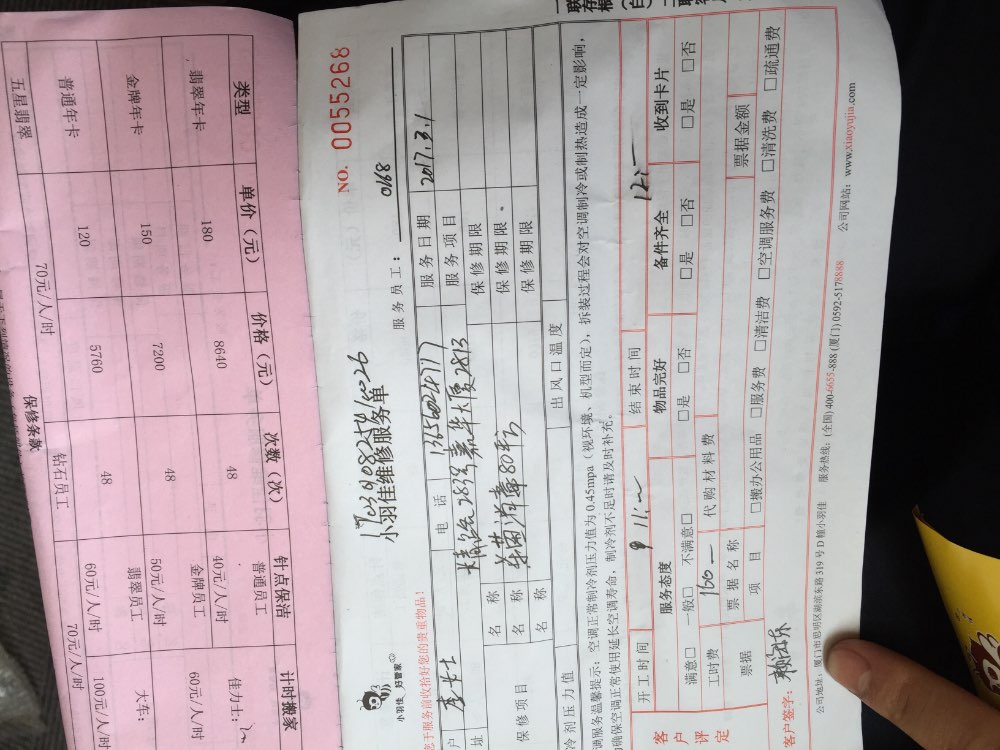 类型
单价（元）
价格（元）
次数（次）
钟点保洁
计时搬家
翡翠年卡
180
8640
48
普通员工
40元/人/时
佳力士:
60元/人/时
金牌年卡
150
7200
48
金牌员工
50元/人/时
火车:
100元/人/时
普通年卡
120
5760
48
翡翠员工
60元/人/时
五星翡翠
70元/人/时
钻石员工
70元/人/时
保修条款
联
存根
（白）
NO. 0055268
小羽佳 好管家
小羽佳维修服务单
服务员工：
0168
您于服务前收拾好您的贵重物品！
户
电话
13650024177
服务日期
2017.3.1
址
283号嘉华大厦2813
服务项目
保修项目
名称
保修期限
名称
保修期限
名称
保修期限
冷剂压力值
出风口温度
调服务温馨提示：空调正常制冷剂压力值为 0.45mpa（视环境、机型而定），拆装过程会对空调制冷或制热造成一定影响，
的确保空调正常使用延长空调寿命，制冷剂不足时请及时补充。
开工时间
结束时间
客户评定
服务态度
物品完好
备件齐全
收到卡片
满意□ 一般□ 不满意□
□是 □否
□是 □否
□是 □否
工时费
160
代购材料费
票据
票据名称
票据金额
项目
□搬办公用品 □服务费 □清洁费 □空调服务费 □清洗费 □疏通费
客户签字：
公司地址：厦门市思明区湖滨东路 319 号 D 幢小羽佳
服务热线：(全国) 400-6655-888 (厦门) 0592-5178888
公司网站：www.xiaoyujia.com